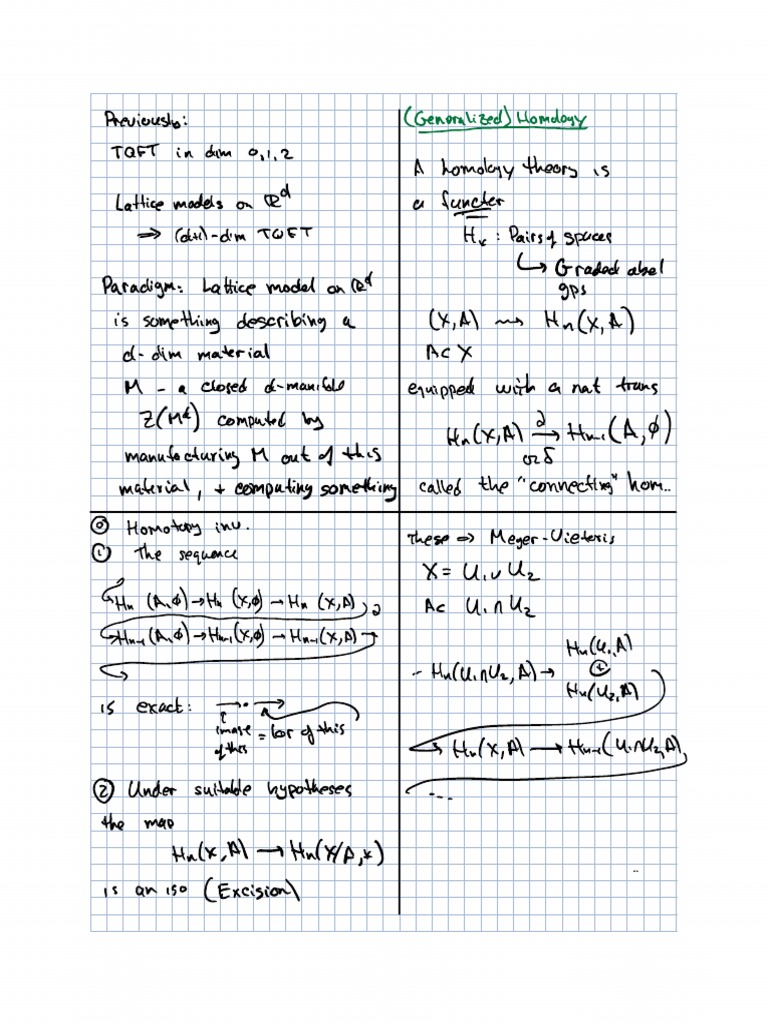 Previously:
TQFT in dim 0,1,2
Lattice models on ℝ^d
⟹ (d+1)-dim TQFT
Paradigm: Lattice model on ℝ^d
is something describing a
d-dim material
M - a closed d-manifold
Z(M^d) computed by
manufacturing M out of this
material, + computing something
(Generalized) Homology
A homology theory is
a functer
H_* : Pairs of spaces
↳ Graded abel
gps
(X,A) ⇝ H_n(X,A)
A⊂X
equipped with a nat trans
H_n(X,A) →^∂ H_{n-1}(A,∅)
or δ
called the "connecting" hom..
⓪ Homotopy inv.
① The sequence
↪ H_n (A,∅) → H_n (X,∅) → H_n (X,A) ∂
↪ H_{n-1}(A,∅) → H_{n-1}(X,∅) → H_{n-1}(X,A) →
is exact: → · →
image = ker of this
of this
② Under suitable hypotheses
the map
H_n(X,A) → H_n(X/A,*)
is an iso (Excision)
These ⟹ Meyer-Vieteris
X = U_1 ∪ U_2
A⊂ U_1 ∩ U_2
H_n(U_1,A)
·· H_n(U_1∩U_2, A) → ⊕
H_n(U_2,A)
↪ H_n(X,A) → H_{n-1}(U_1∩U_2,A)
...